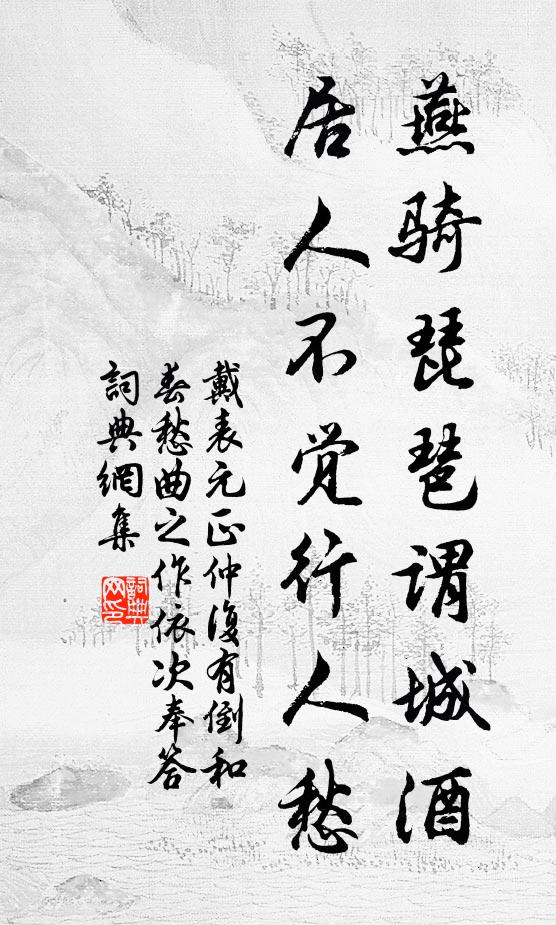 燕骑琵琶谓城酒
居人不觉行人愁
戴表元正仲復有倒和
春愁曲之作依次奉答
詞典網集
詞典
网印